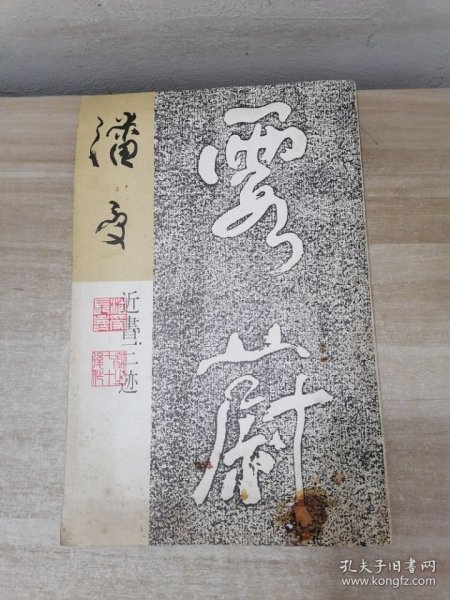 霞蔚
潘受
近書三迹
孔夫子旧书网
www.kongfz.com